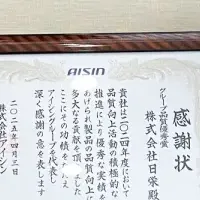 AISIN
感謝状
グループ品質優秀賞
株式会社日栄殿
貴社は二〇二四年度において
品質向上活動の積極的な
推進により優秀な実績を
あげられ製品の品質向上に
多大なる貢献を頂きました
ここにその功績をたたえ
アイシングループを代表し
深く感謝の意を表します
二〇二五年四月三日
株式会社アイシン